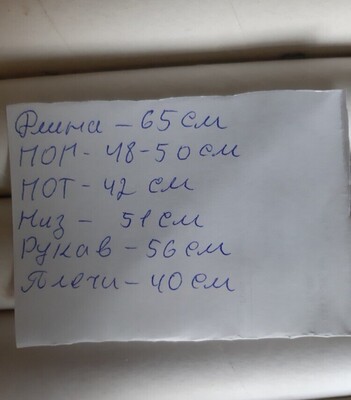 Длина - 65 см
ПОГ - 48-50 см
ПОТ - 42 см
Низ - 51 см
Рукав - 56 см
Плечи - 40 см